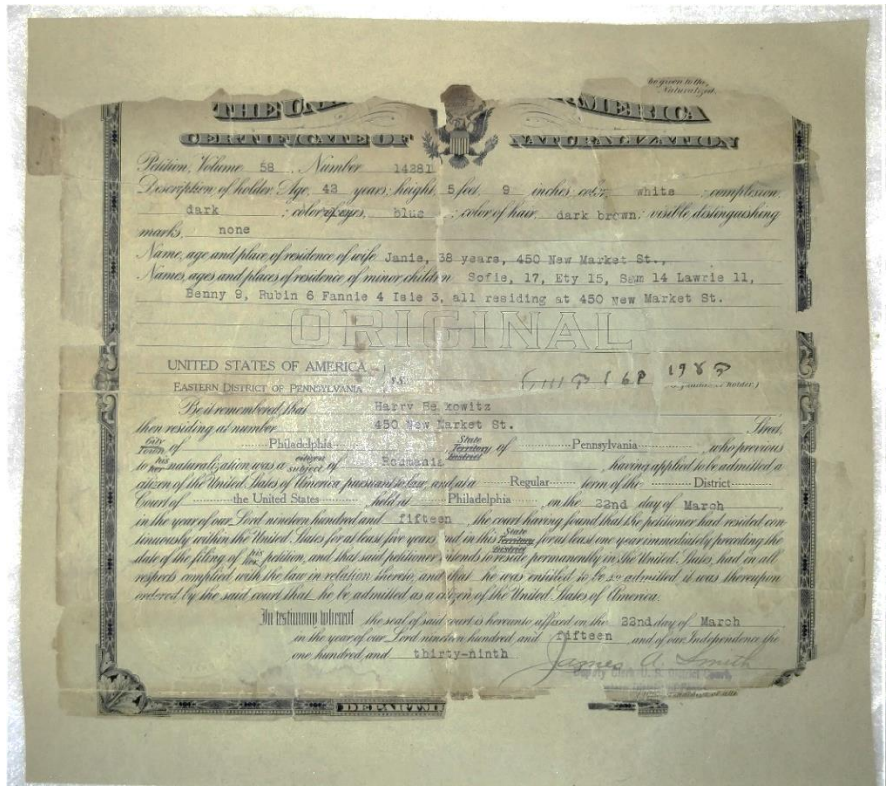 be given to the
Naturalized.
THE UN MERICA
CERTIFICATE OF NATURALIZATION
Petition, Volume 58 Number 14281
Description of holder: Age, 42 years; height, 5 feet, 9 inches; color, white ; complexion,
dark ; color of eyes, blue ; color of hair, dark brown; visible distinguishing
marks, none
Name, age and place of residence of wife Janie, 38 years, 450 New Market St.,
Names, ages and places of residence of minor children Sofie, 17, Ety 15, Sam 14 Lawrie 11,
Benny 9, Rubin 6 Fannie 4 Isie 3, all residing at 450 New Market St.
ORIGINAL
UNITED STATES OF AMERICA
EASTERN DISTRICT OF PENNSYLVANIA S.S.
holder)
Be it remembered, that Harry kowitz
then residing at number 450 New Market St. Street,
City Town of Philadelphia State Territory District of Pennsylvania , who previous
to his her naturalization was a citizen subject of Roumania , having applied to be admitted a
citizen of the United States of America pursuant to law, and at a Regular term of the District
Court of the United States held at Philadelphia on the 22nd day of March
in the year of our Lord nineteen hundred and fifteen , the court having found that the petitioner had resided con
tinuously within the United States for at least five years and in this State Territory District for at least one year immediately preceding the
date of the filing of his her petition, and that said petitioner intends to reside permanently in the United States, had in all
respects complied with the law in relation thereto, and that he was entitled to be so admitted, it was thereupon
ordered by the said court that he be admitted as a citizen of the United States of America.
In testimony whereof the seal of said court is hereunto affixed on the 22nd day of March
in the year of our Lord nineteen hundred and fifteen and of our Independence the
one hundred and thirty-ninth
James A. Smith
Deputy Clerk U. S. District Court,
DEPARTM